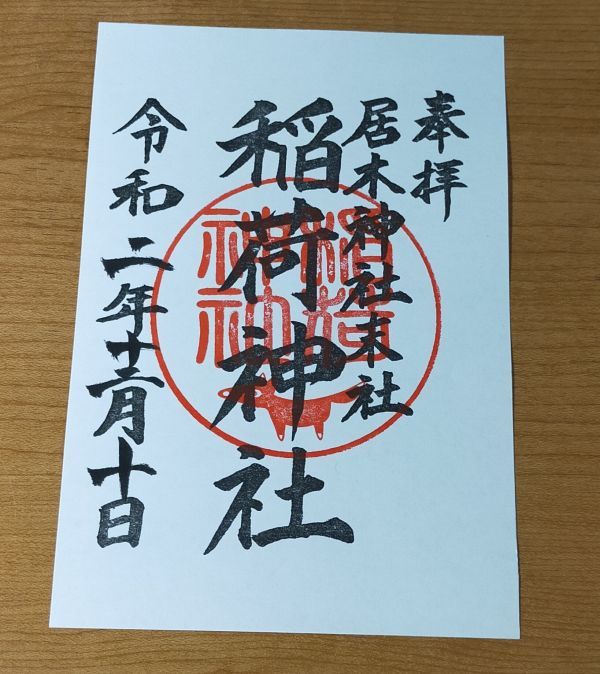 奉拝
居木神社末社
稲荷神社
令和二年十二月十日
稲荷
神社